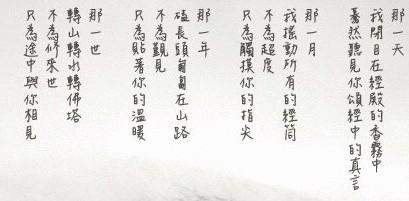 那一天
我閉目在經殿的香霧中
驀然聽見你頌經中的真言
那一月
我搖動所有的經筒
不為超度
只為觸摸你的指尖
那一年
磕長頭匍匐在山路
不為覲見
只為貼著你的溫暖
那一世
轉山轉水轉佛塔
不為修來世
只為途中與你相見